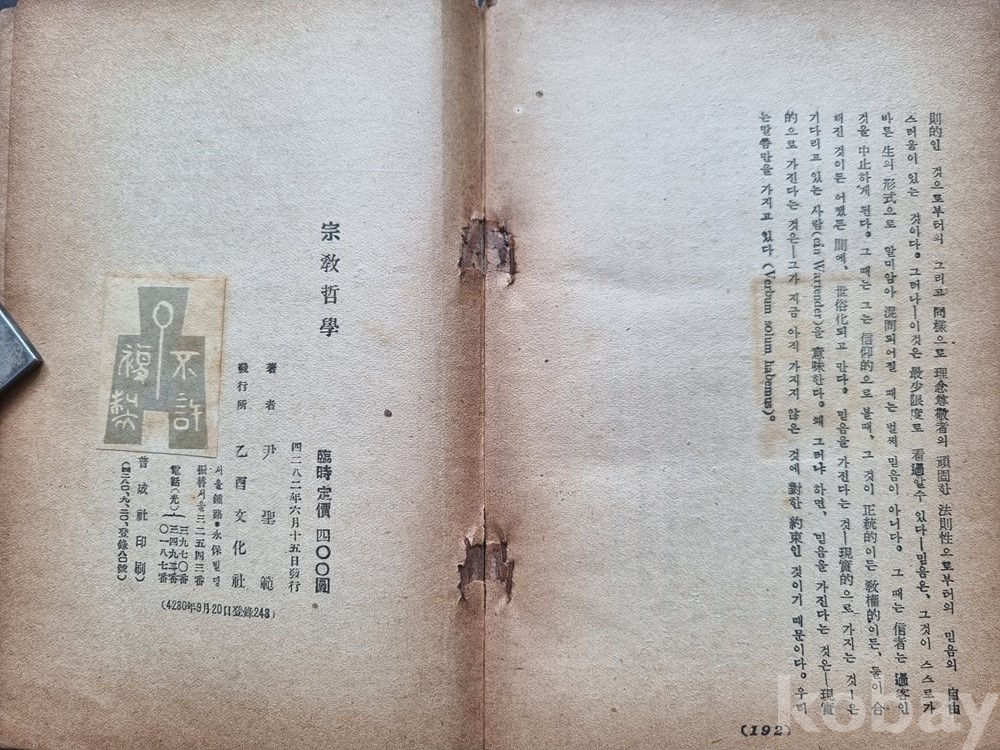 則的인 것으로부터의 그리고 同樣으로 理念尊敬者의 頑固한 法則性으로부터의 믿음의 自由
스러움이 있는 것이다。그러나―이것은 最少限度로 看過할수 있다―믿음은、그것이 스스로가
바튼 生의 形式으로 말미암아 混同되어질 때는 벌써 믿음이 아니다。그 때는 信者는 過客인
것을 中止하게 된다。그 때는 그는 信仰的으로 볼때、그것이 正統的이든 敎權的이든、둘이 合
해진 것이든 어쨌든 間에、世俗化되고 만다。믿음을 가진다는 것―現實的으로 가지는 것―은
기다리고 있는 사람(ein Wartender)을 意味한다。왜 그러냐 하면、믿음을 가진다는 것은―現實
的으로 가진다는 것은―그가 지금 아직 가지지 않은 것에 對한 約束인 것이기 때문이다。우리
는말씀만을 가지고 있다(Verbum solum habemus)。
(192)
宗教哲學
臨時定價 四〇〇圓
四二八二年六月十五日發行
著者 尹聖範
發行所 乙酉文化社
서울鍾路・永保빌딩
振替서울三二五四三番
三九七〇番
電話(光)三四九二番
〇一八七番
普成社印刷
(四二八〇、九、二〇、登錄合號)
(4280年9月20日登錄248)
不許
複製
kobay